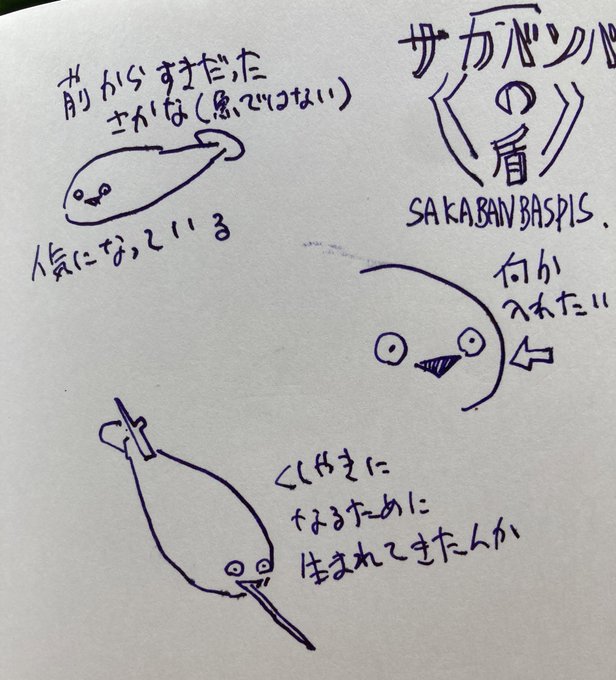 前からすきだった
さかな(魚ではない)
人気になっている
サカバンバ
の
盾
SAKABANBASPIS.
何か
入れたい
くしやきに
なるために
生まれてきたんか